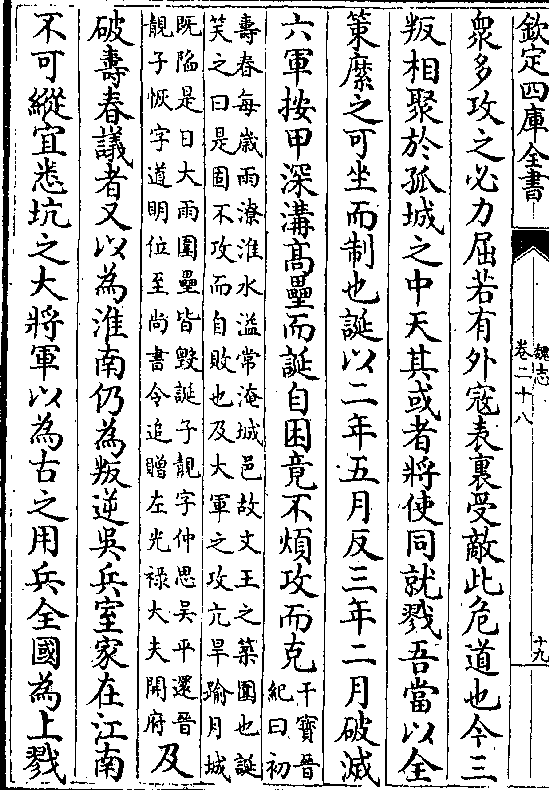 欽定四庫全書
魏志
卷二十八
十九
衆多攻之必力屈若有外寇表裏受敵此危道也今三
叛相聚於孤城之中天其或者將使同就戮吾當以全
策縻之可坐而制也誕以二年五月反三年二月破滅
六軍按甲深溝髙壘而誕自困竟不煩攻而克
干寳晉
紀曰初
壽春每歳雨潦淮水溢常淹城邑故文王之築圍也誕
笑之曰是固不攻而自敗也及大軍之攻亢旱踰月城
既陷是日大雨圍壘皆毁誕子靚字仲思吳平還晉
靚子恢字道明位至尚書令追贈左光祿大夫開府
及
破壽春議者又以為淮南仍為叛逆吳兵室家在江南
不可縱宜悉坑之大將軍以為古之用兵全國為上戮